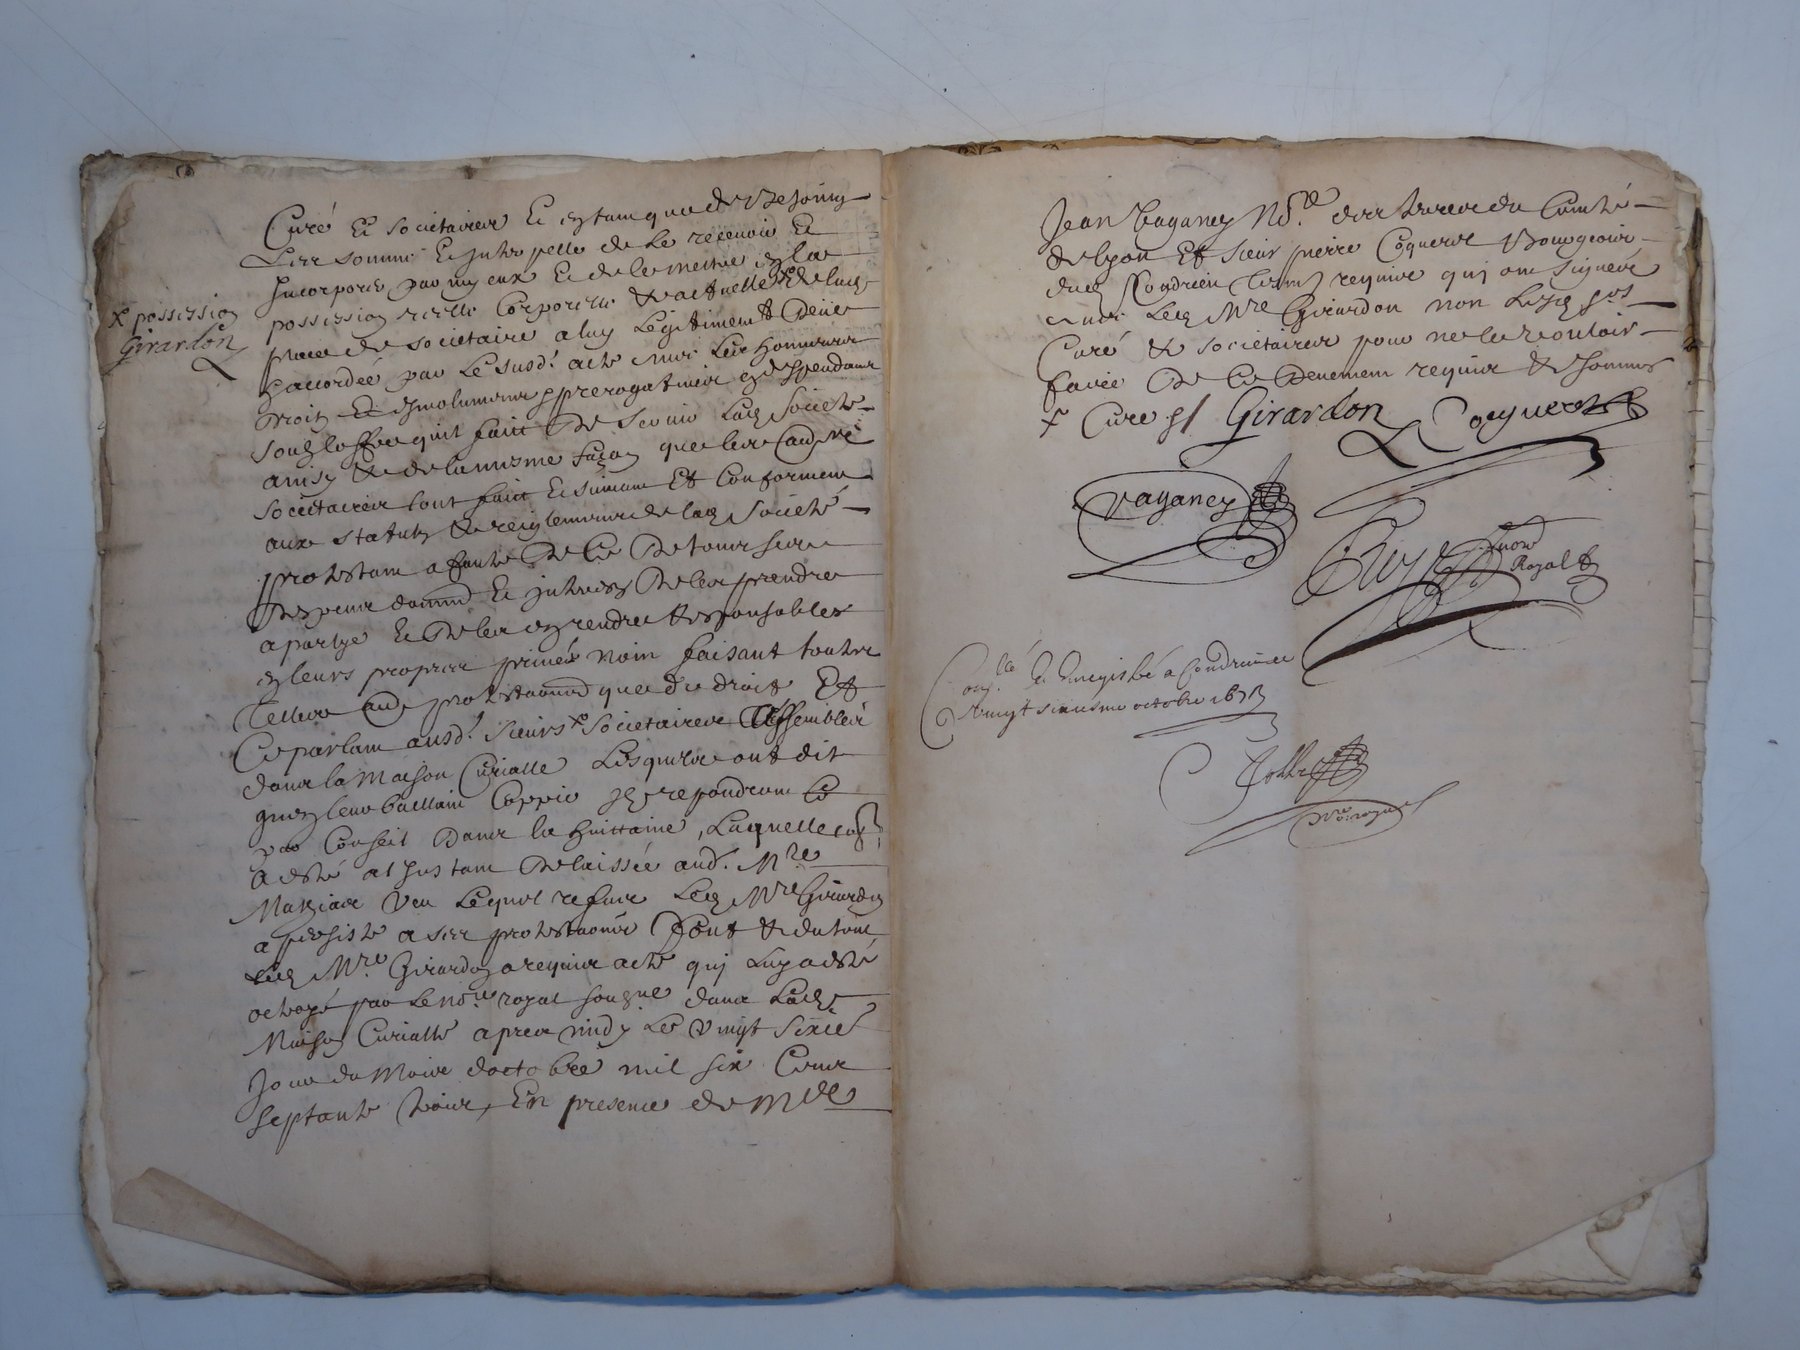 Curé Et Societaires Et en tant que de Besoing
Les somme Et Interpelle de Le recevoir Et
Incorporer parmy eux Et de le mettre en la
possession reelle Corporelle & actuelle de lad.
x possession
Girardon
place de societaire a luy Legitimement deüe
& accordée par Le susd. acte avec Les honneurs
Droits Et esmoluments & prerogatives en dependans
soubz loffre quil faict De servir Lad. Societé
ainsy & de la mesme façon que les Curé
Societaires sont Et Conformement
aux statuts & reiglements de lad. Societé
protestant a faute De Ce De tous ses
Despens dommages Et Interests De les prendre
a partye Et De les en rendre Responsables
en leurs propres privés nom faisant toutes
telles protestations que de droit Et
Ce parlant ausd. sieurs x societaires Assemblés
dans la Maison Curialle Lesquels ont dit
quen leur baillant Coppie Ils repondront
par Conseil Dans la huittaine, Laquelle
a esté a l Instant Delaissée aud. Mre
Mathias Veu Lequel refus Led. Mre Girardon
a persisté a ses protestations Dont & du tout
Led. Mre Girardon a requis acte qui Luy a esté
octroyé par Le nore. royal soubzne. dans Lad.
Maison Curialle apres midy Le Vingt sixie.
Jour du Mois doctobre mil six Cens
septante trois, En presence de Me
Jean Vaganey No.re des terres du Comté
de Lyon Et sieur pierre Coqueret Bourgeois
dud. Condrieu tesmoins requis qui ont signé
avec Led. Mre Girardon non Lesd. srs
Curé & societaires pour ne le vouloir
faire De Ce Deuement requis & sommés
x Curé Girardon Coqueret
Vaganey
Royal
Con.lé Et Enregistré a Condrieu le
vingt sixiesme octobre 1673